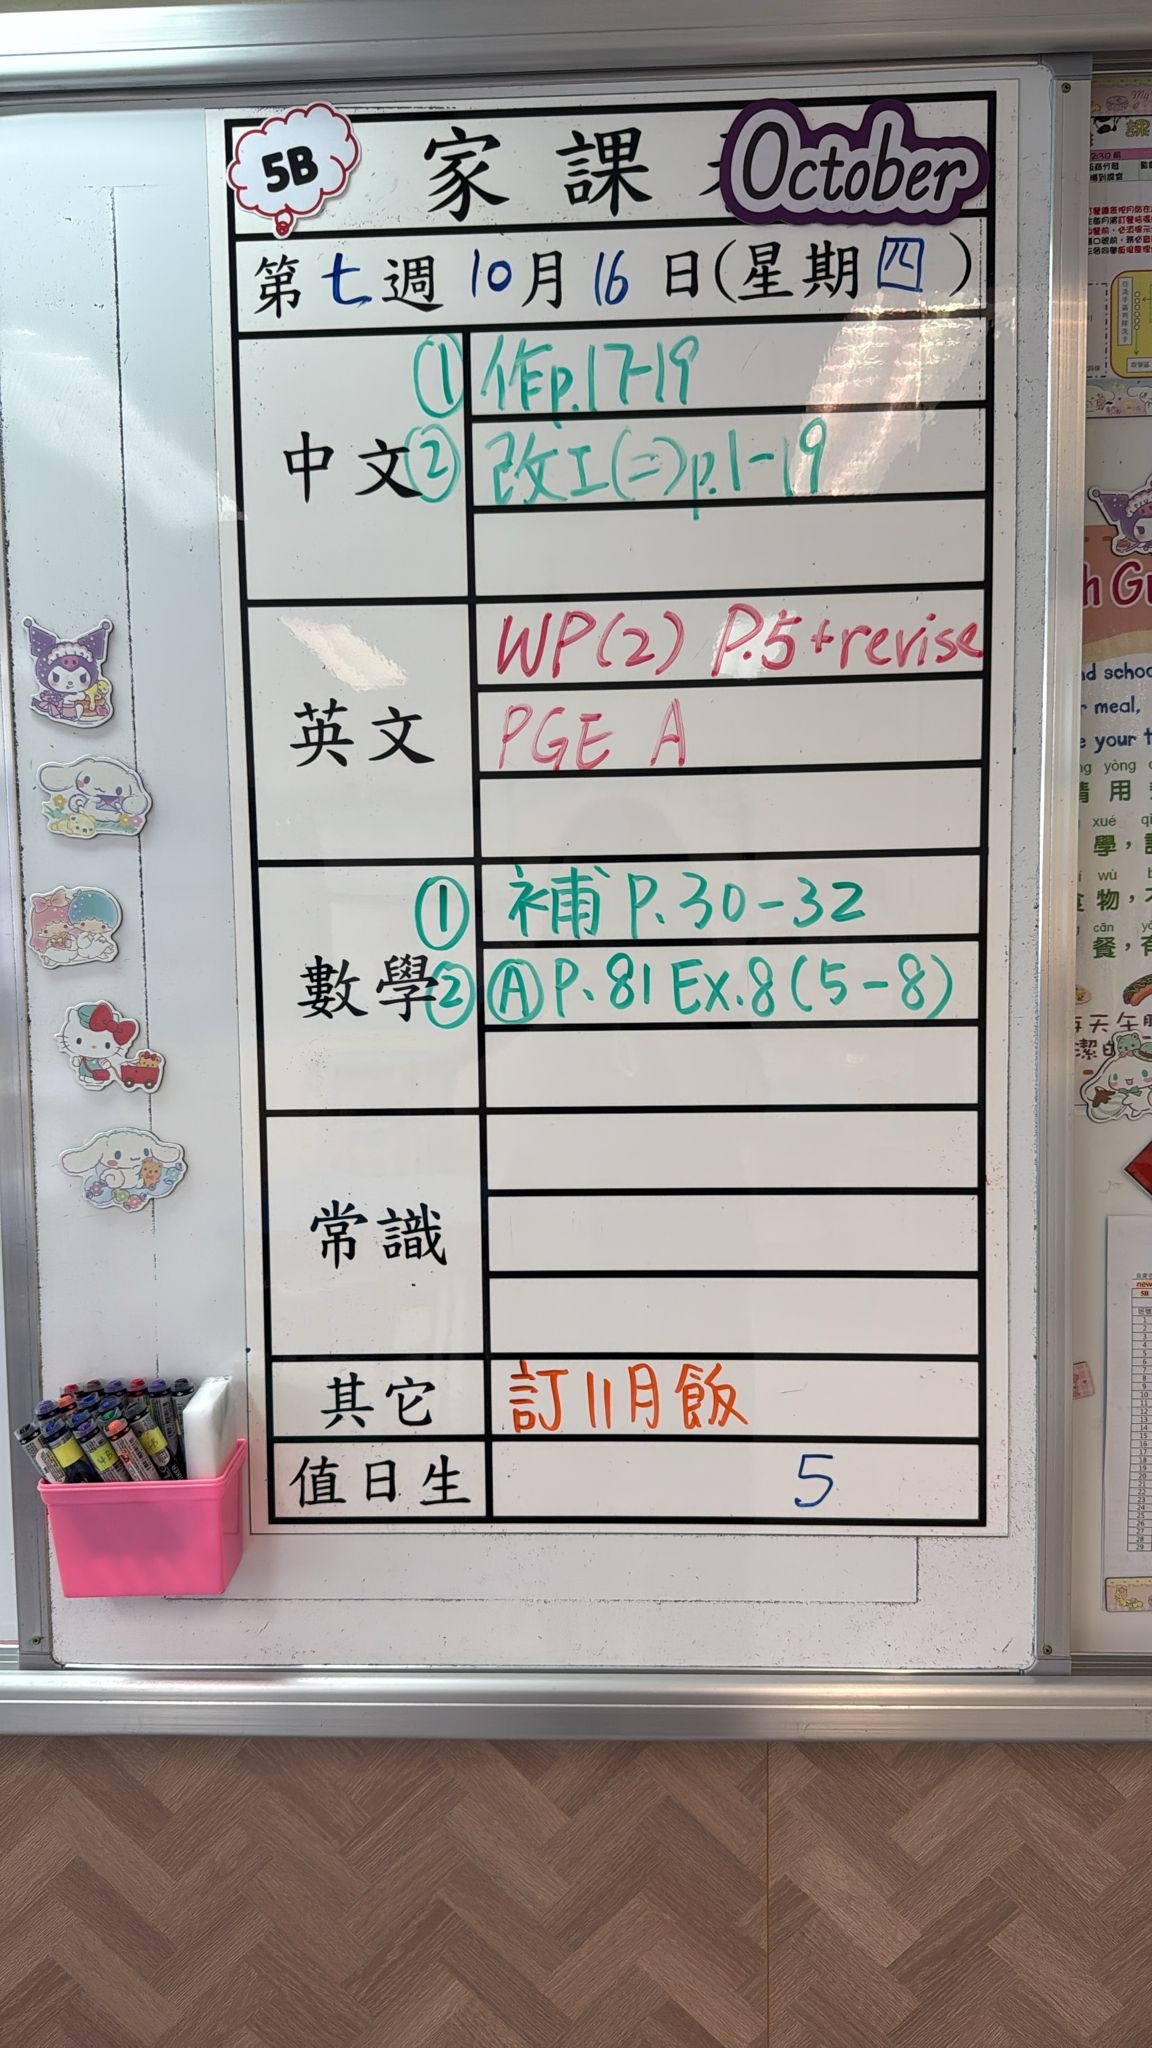 5B
家課
October
第七週10月16日(星期四)
中文
① 作p.17-19
② 改工(二)p.1-19
英文
WP(2) P.5+revise
PGE A
數學
① 補 P.30-32
② Ⓐ P.81 Ex.8 (5-8)
常識
其它
訂11月飯
值日生
5
h Gu
nd schoo
r meal,
e your t
yòng
用
xué
學，
wù
物，
cān
餐，
每天午
潔